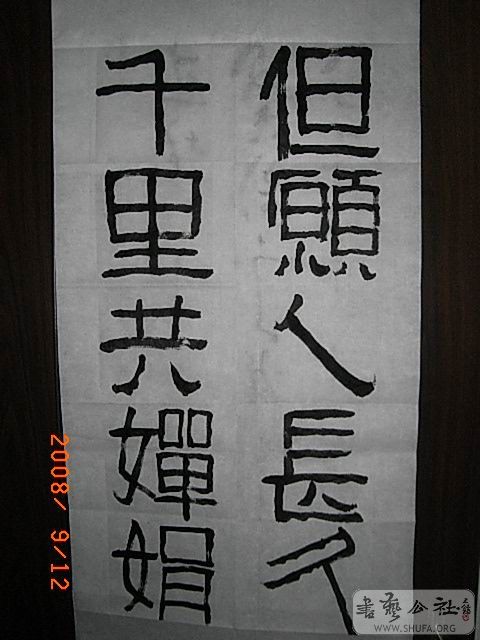 但願人長久
千里共嬋娟
2008/ 9/12
書藝公社
WWW.SHUFA.ORG